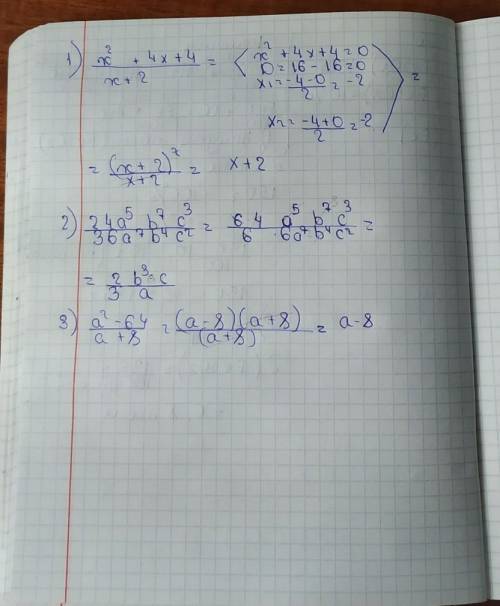 1) (x² + 4x + 4)/(x + 2) = ⟨ x² + 4x + 4 = 0
D = 16 - 16 = 0
x₁ = (-4 - 0)/2 = -2
x₂ = (-4 + 0)/2 = -2 ⟩ =
= (x + 2)²/(x + 2) = x + 2
2) (24a⁵ b⁷ c³)/(36a⁷ b⁴ c²) = (6·4 a⁵ b⁷ c³)/(6·6a⁷ b⁴ c²) =
= (2 b³ c)/(3 a)
3) (a² - 64)/(a + 8) = ((a - 8)(a + 8))/((a + 8)) = a - 8